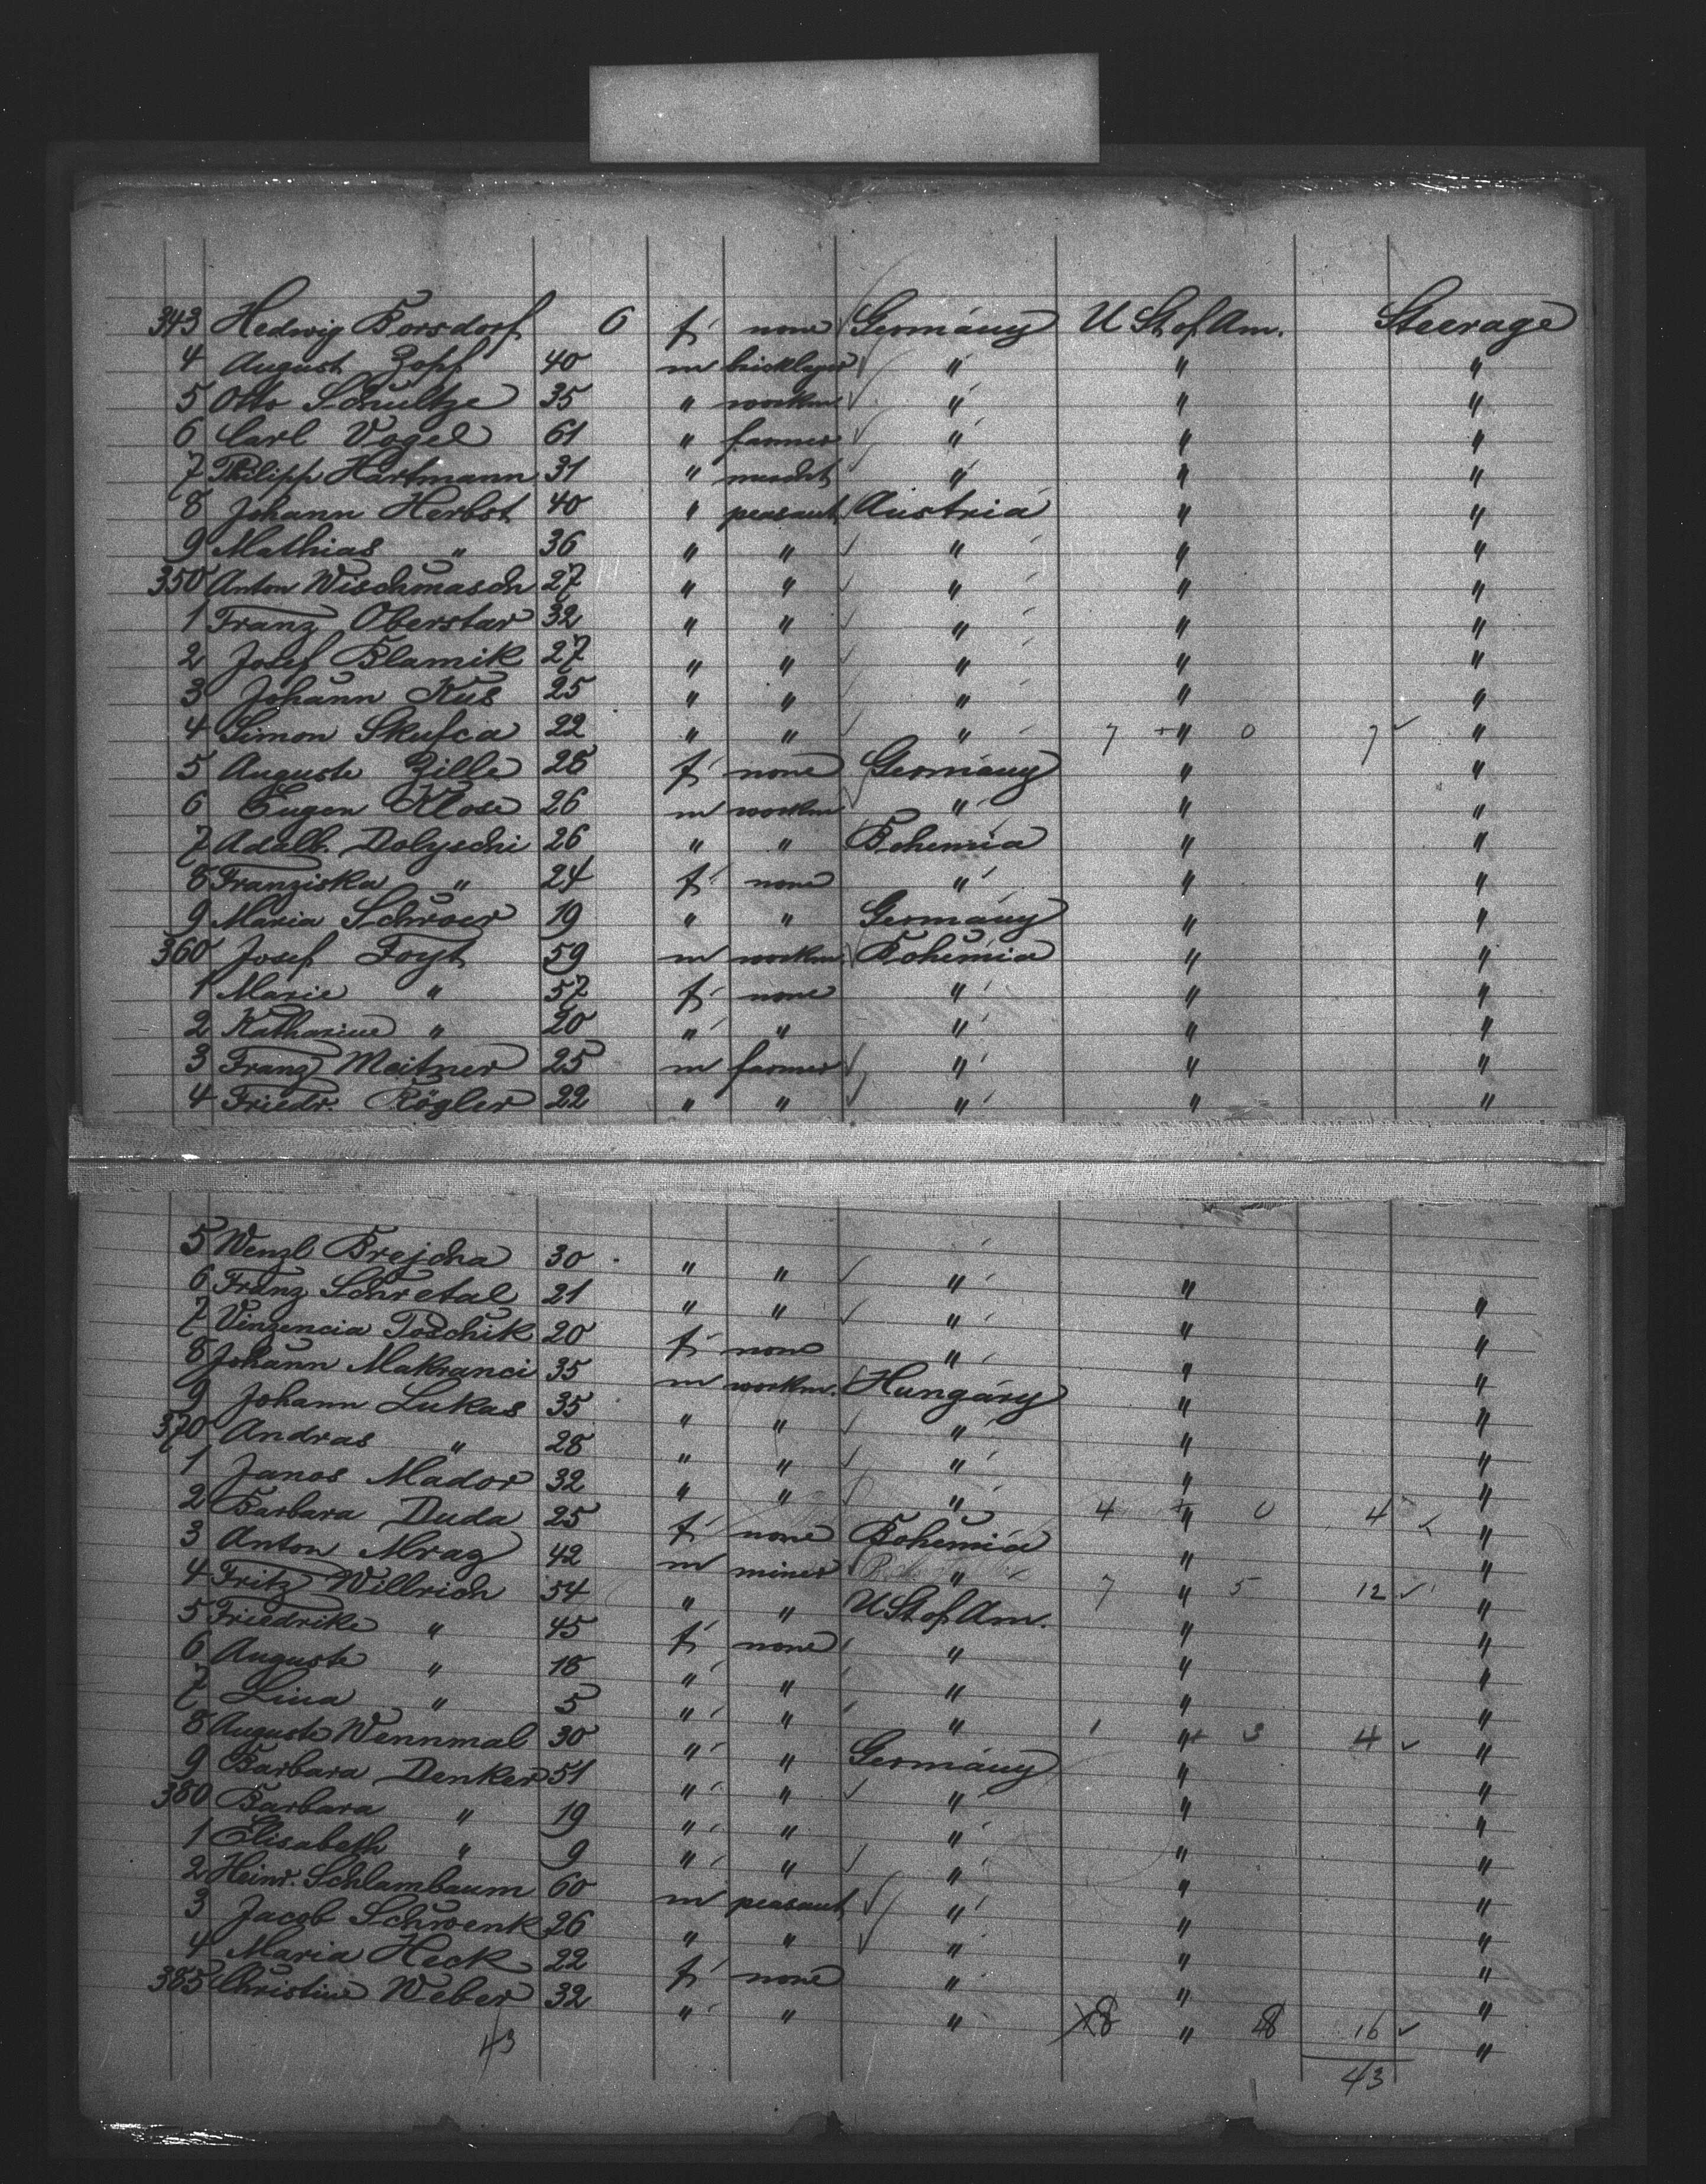 343 Hedwig Borsdorf 6 f none Germany U St of Am. Steerage
4 August Zopf 40 m bricklayer " " "
5 Otto Schultze 35 " workm " " "
6 Carl Vogel 61 " farmer " " "
7 Philipp Hartmann 31 " mercht " " "
8 Johann Herbst 40 " peasant Austria " "
9 Mathias " 36 " " " " "
350 Anton Wischmasch 27 " " " " "
1 Franz Oberstar 32 " " " " "
2 Josef Blamik 27 " " " " "
3 Johann Kus 25 " " " " "
4 Simon Skufca 22 " " " 7 + " 0 7 "
5 Auguste Zille 28 f none Germany " "
6 Eugen Klose 26 m workm " " "
7 Adalb. Dolyschi 26 " " Bohemia " "
8 Franziska " 24 f none " " "
9 Maria Schroer 19 " " Germany " "
360 Josef Foyt 59 m workm. Bohemia " "
1 Marie " 57 f none " " "
2 Katharine " 20 " " " " "
3 Franz Meitner 25 m farmer " " "
4 Friedr. Rögler 22 " " " " "
5 Wenzl Brejcha 30 " " " " "
6 Franz Schretal 21 " " " " "
7 Vinzencia Toschik 20 f none " " "
8 Johann Makranci 35 m workm. Hungary " "
9 Johann Lukas 35 " " " " "
370 Andras " 28 " " " " "
1 Janos Mador 32 " " " 4 + " 0 4 "
2 Barbara Duda 25 f none Bohemia " "
3 Anton Mraz 42 m miner " 7 " 5 12 "
4 Fritz Willrich 54 " " U St of Am. " "
5 Friedrike " 45 f none " " "
6 Auguste " 18 " " " " "
7 Lina " 5 " " " 1 " + 3 4 "
8 Auguste Wennmal 30 " " Germany " "
9 Barbara Denker 51 " " " " "
380 Barbara " 19 " " " " "
1 Elisabeth " 9 " " " " "
2 Heinr. Schlambaum 60 m peasant " " "
3 Jacob Schwenk 26 " " " " "
4 Maria Heck 22 f none " " "
385 Christine Weber 32 " " " 8 " 8 16 "
43 43